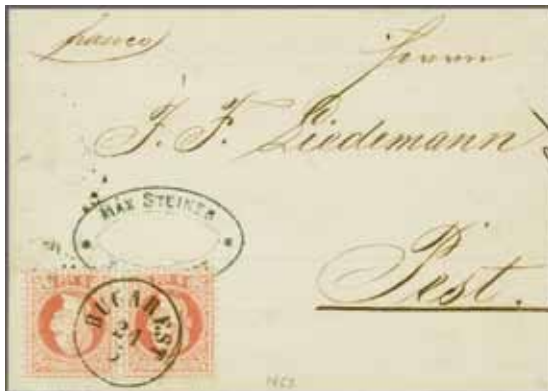 franco
Herrn
J. F. Liedemann
MAX STEINER
Pest.
BUCAREST
21